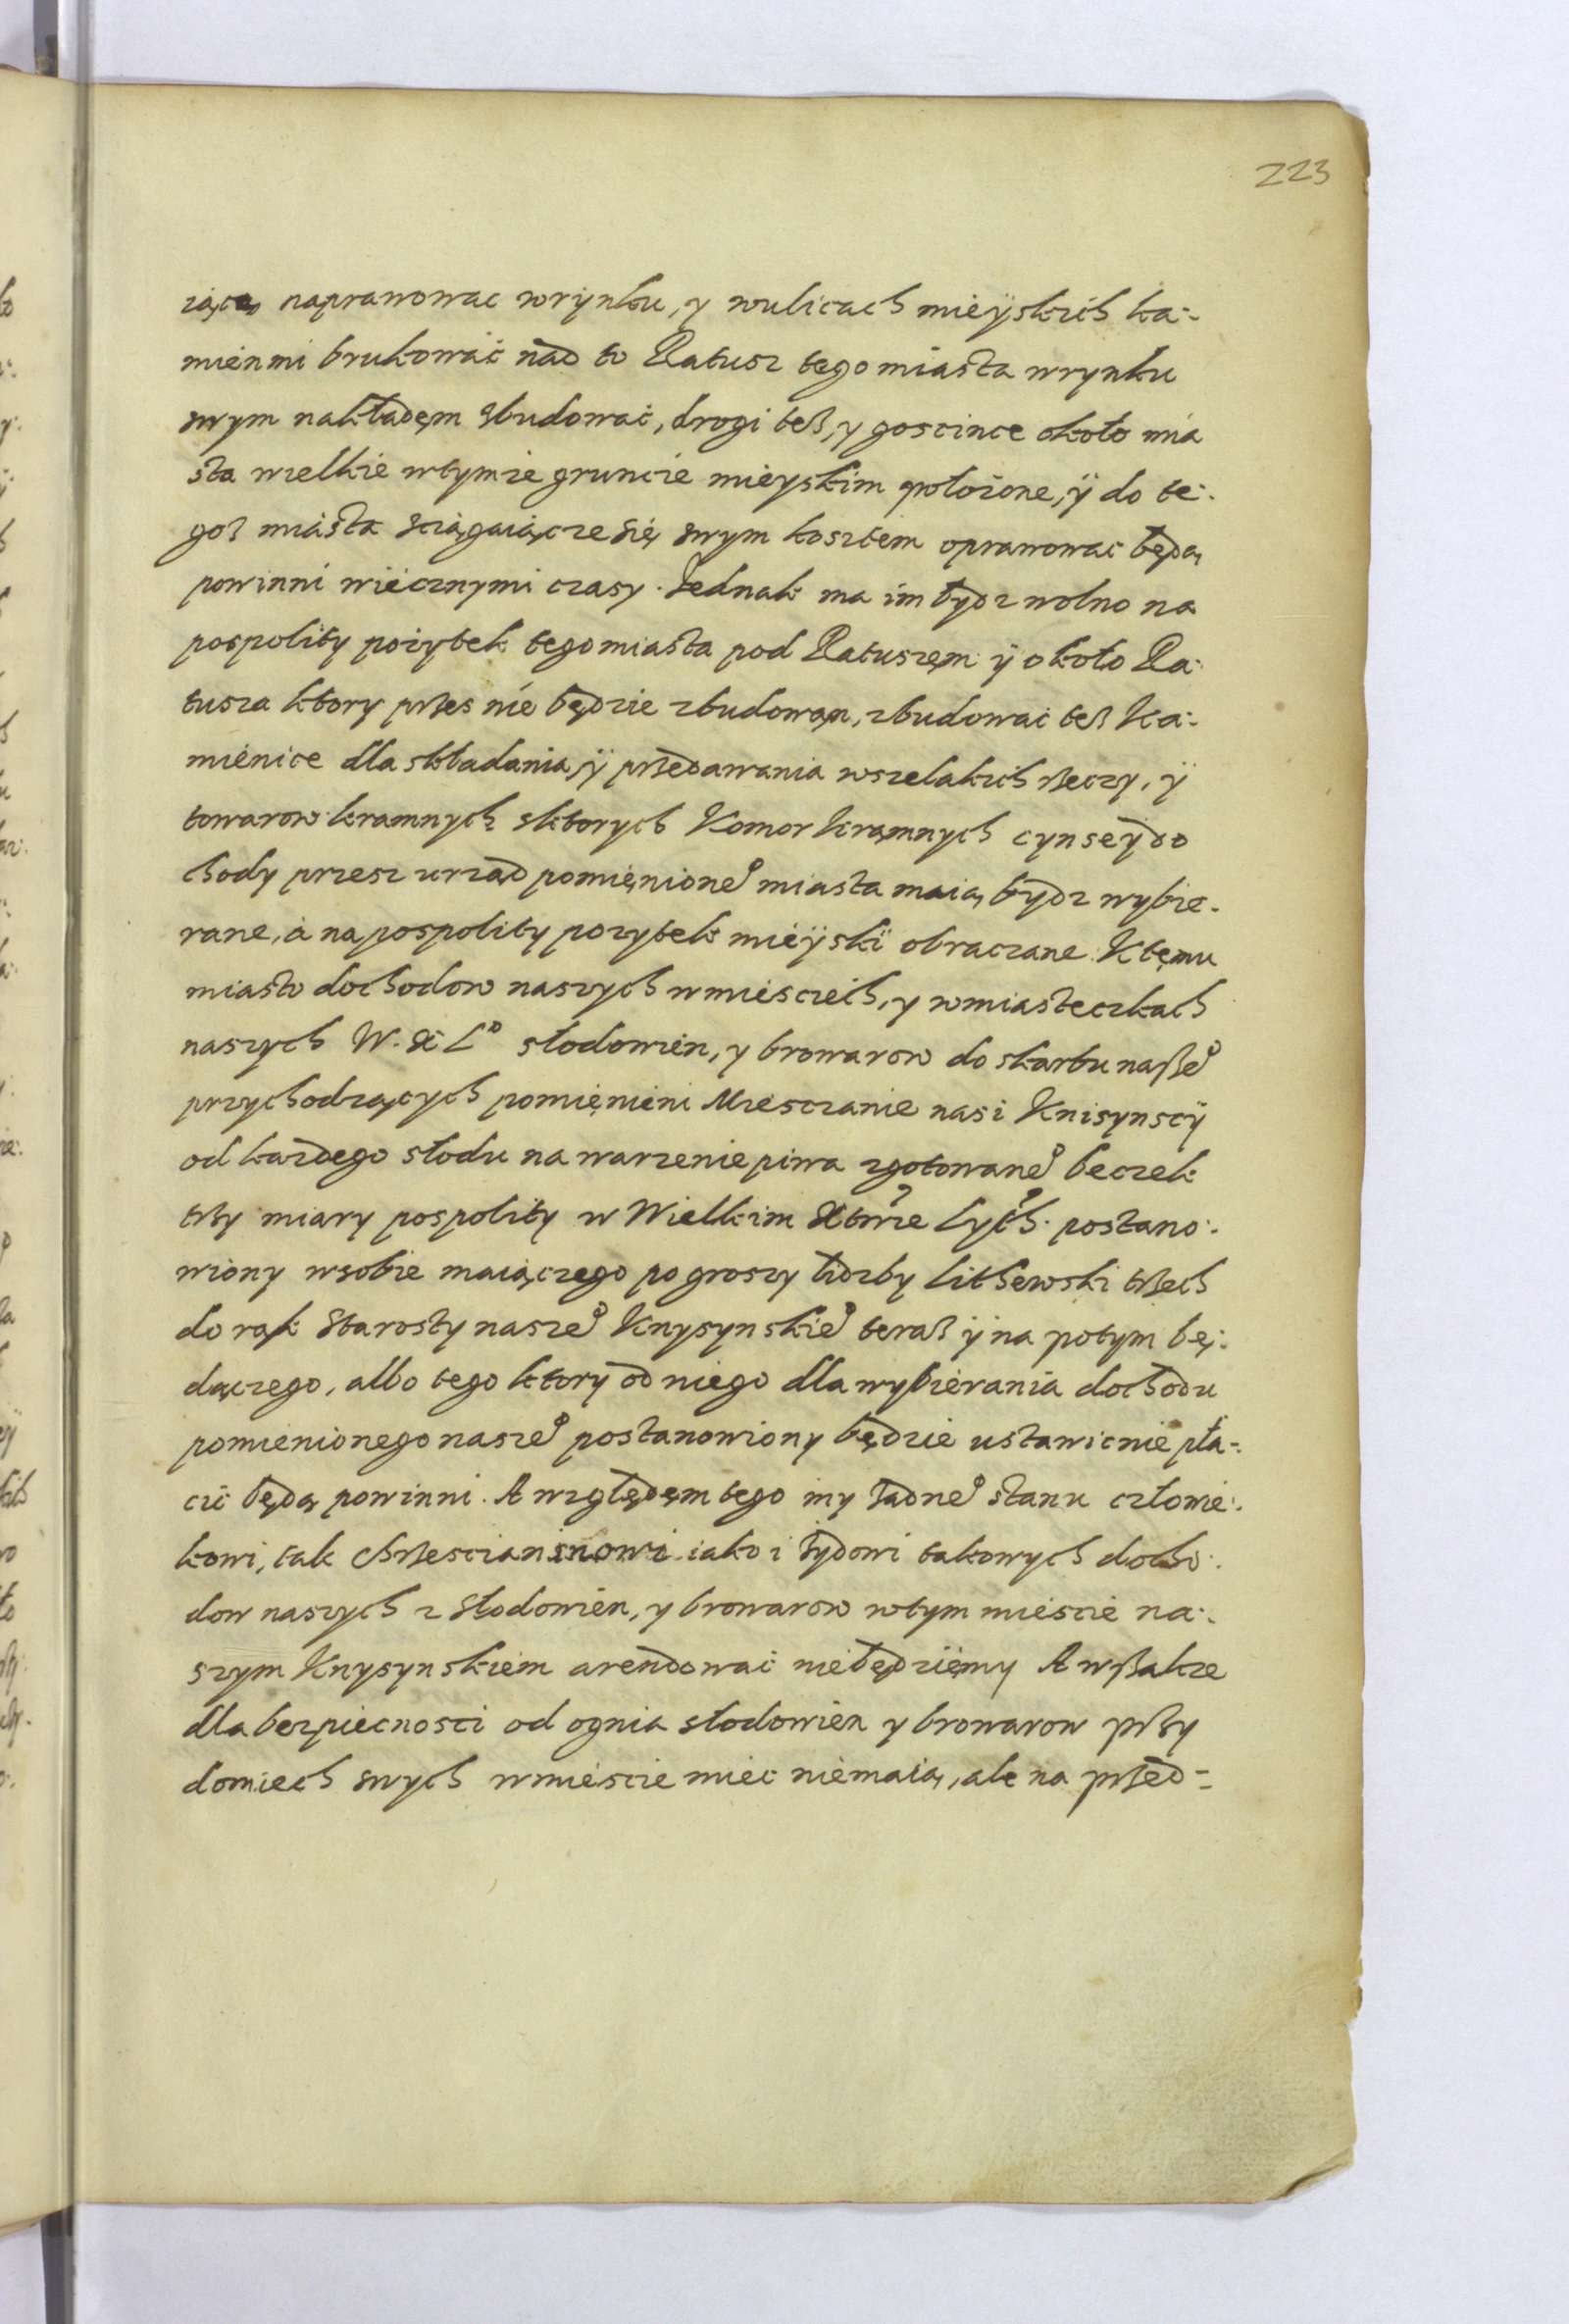 223
ziącą naprawowac wrÿnku, y wulicach mieÿskich ka:
mienmi brukowac nad to Ratusz tego miasta wrynku
swym nakładęm zbudowac, drogi teß, y goscince około mia
sta wielkie wtymze gruncie mieyskim położone, ÿ do te:
goz miasta sciągaiącze się swym kosztem oprawowac będą
powinni wiecznymi czasy. Jednak ma im bydz wolno na
pospolity pożytek tego miasta pod Ratuszęm ÿ około Ra:
tusza ktory przes nie będzie zbudowan, zbudowac teß Ka:
mienice dla składania, ÿ przedawania wszelakich rzeczy, ÿ
towarow kramnych z ktorych Komor kramnych cynse ÿ do
chody przesz urząd pomienione° miasta maią bydz wybie.
rane, a na pospolity pozytek mieÿskï obraczane. K temu
miasto dochodow naszych w miesciech, y w miasteczkach
naszych W. X L° słodowien, y browarow do skarbu naße°
przychodzących pomięnieni Miesczanie nasi Knisynscÿ
od kazdego słodu na warzenie piwa zgotowane° beczek
trzy miary pospolity w Wielkim Xtwie Lych. postano:
wiony wsobie maiączego po groszy liczby Lithewski trzech
do rąk Starosty nasze° Knysynskie° teraß ÿ na potym bę:
dączego, albo tego ktory od niego dla wybierania dochodu
pomienionego nasze° postanowiony będzie ustawicnie pła:
cic będą powinni. A względęm tego my żadne° stanu człowie:
kowi, tak chrzescianinowi iako i żydowi takowych docho:
dow naszych z Słodowien, y browarow wtym miescie na:
szym Knysynskiem arendowac niebędzięmy A wßakze
dla bezpiecnosci od ognia słodowien y browarow przy
domiech swych w miescie miec niemaią, ale na przed=